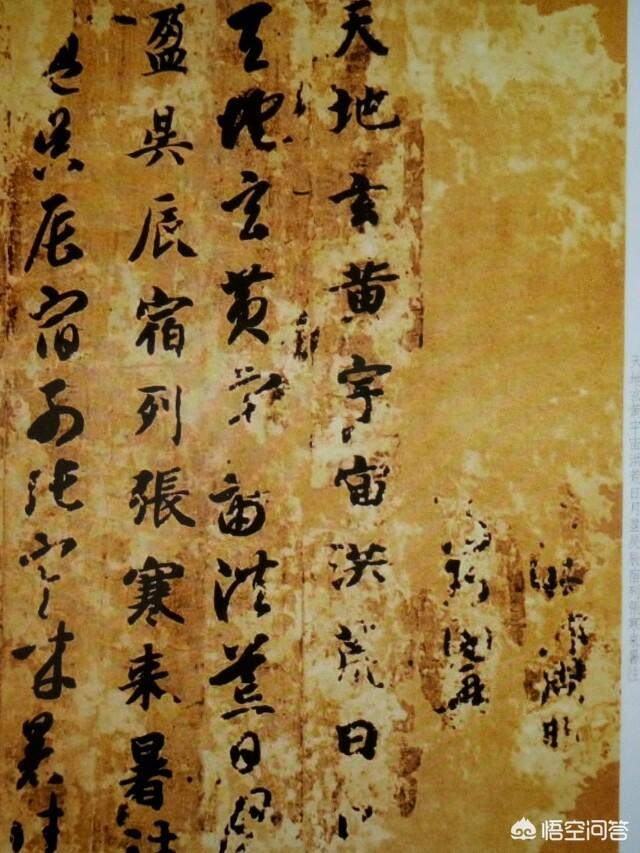 天地玄黄宇宙洪荒日月盈昃辰宿列张寒来暑往
天地玄黄宇宙洪荒日月
天地玄黄宇宙洪荒日月
盈昃辰宿列張寒来暑往
盈昃辰宿列張寒来暑往
悟空问答